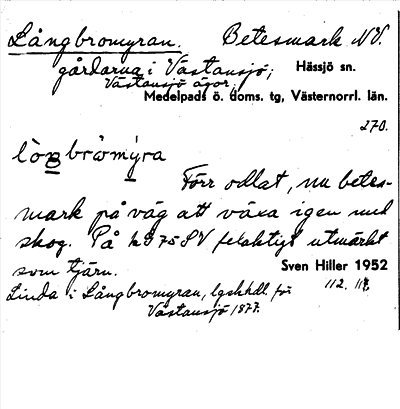 Långbromyran. Betesmark NV.
gårdarna i Västansjö; Hässjö sn.
Västansjö ägor;
Medelpads ö. doms. tg, Västernorrl. län.
270.
Förr odlat, nu betes-
mark på väg att växa igen med
skog. På k 975 SV felaktigt utmärkt
som tjärn. Sven Hiller 1952
Linda i Långbromyran, lgskhdl. för 112. 117.
Västansjö 1877.